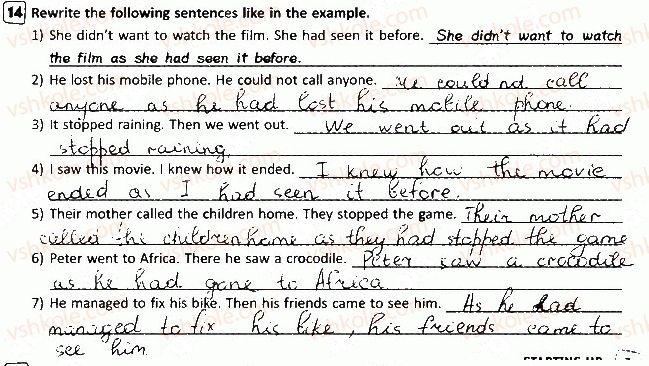 14 Rewrite the following sentences like in the example.
1) She didn't want to watch the film. She had seen it before. She didn't want to watch
the film as she had seen it before.
2) He lost his mobile phone. He could not call anyone. He could not call
anyone as he had lost his mobile phone.
3) It stopped raining. Then we went out. We went out as it had
stopped raining.
4) I saw this movie. I knew how it ended. I knew how the movie
ended as I had seen it before.
5) Their mother called the children home. They stopped the game. Their mother
called the children home as they had stopped the game
6) Peter went to Africa. There he saw a crocodile. Peter saw a crocodile
as he had gone to Africa
7) He managed to fix his bike. Then his friends came to see him. As he had
managed to fix his bike, his friends came to
see him.
STARTING UP